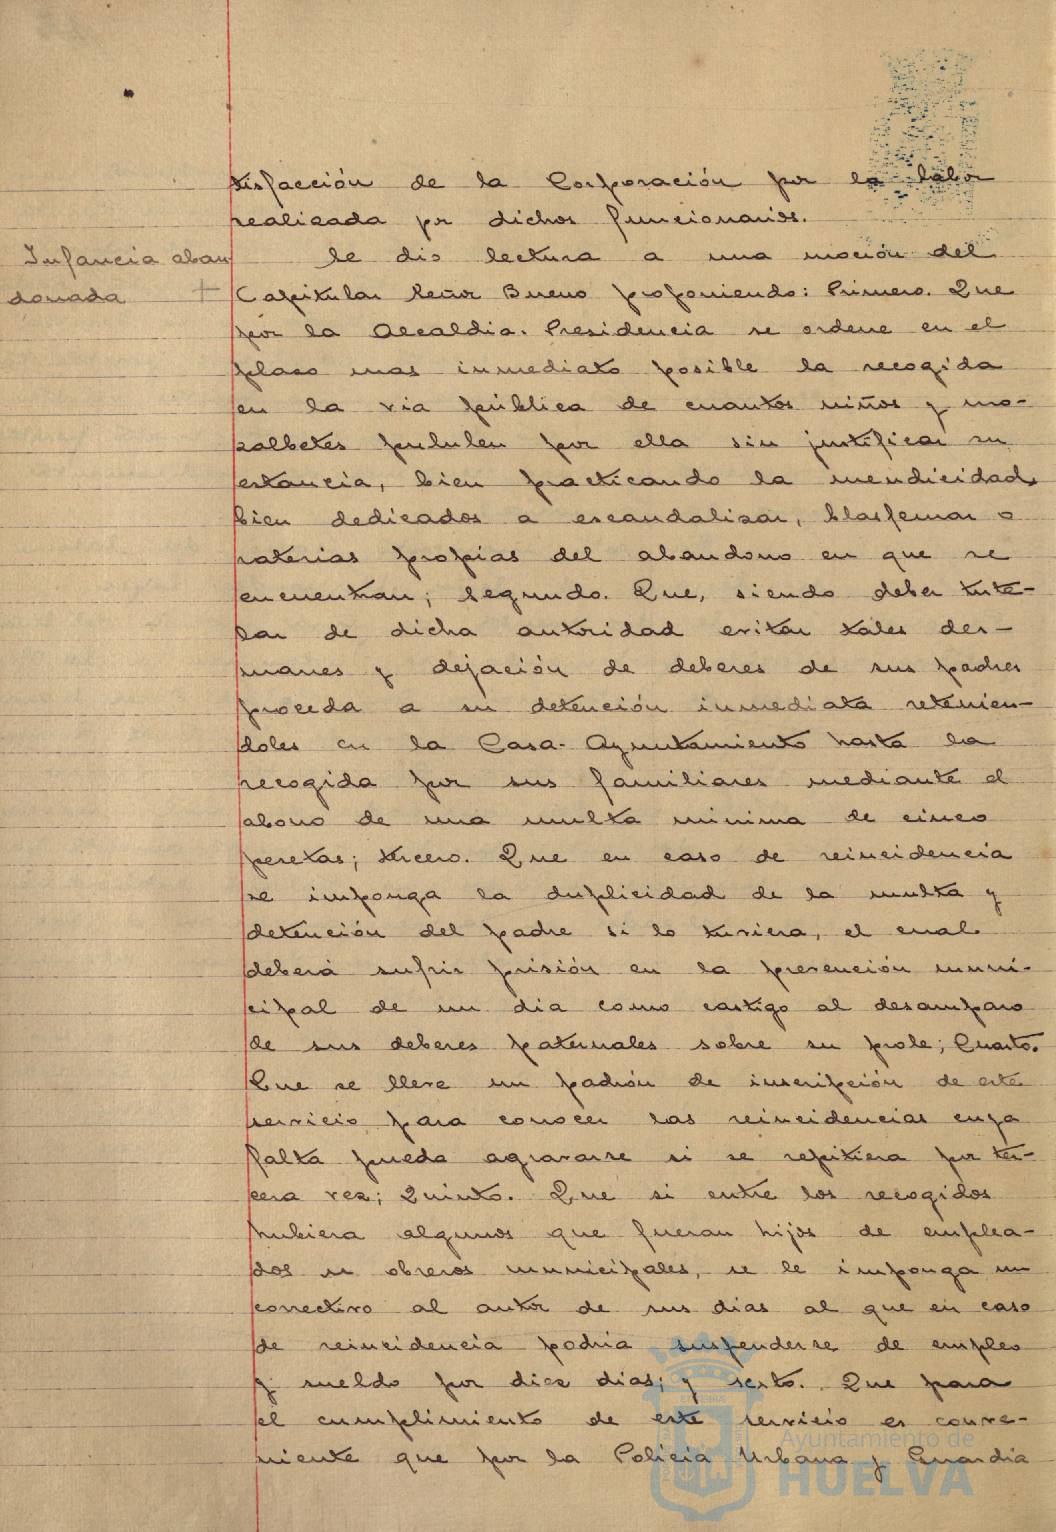 tisfacción de la Corporación por la labor
realizada pr dichos funcionarios.
Infancia aban
donada +
Se dio lectura a una moción del
Capitular Señor Bueno proponiendo: Primero. Que
por la Alcaldia-Presidencia se ordene en el
plazo mas inmediato posible la recogida
en la via pública de cuantos niños y mo-
zalbetes pululen por ella sin justificar su
estancia, bien practicando la mendicidad,
bien dedicados a escandalizar, blasfemar o
raterias propias del abandono en que se
encuentran; Segundo. Que, siendo deber tute-
lar de dicha autoridad evitar tales des-
manes y dejación de deberes de sus padres
proceda a su detención inmediata retenien-
doles en la Casa-Ayuntamiento hasta la
recogida por sus familiares mediante el
abono de una multa minima de cinco
pesetas; tercero. Que en caso de reincidencia
se imponga la duplicidad de la multa y
detención del padre si lo tuviera, el cual
deberá sufrir prisión en la prevención muni-
cipal de un dia como castigo al desamparo
de sus deberes paternales sobre su prole; Cuarto.
Que se lleve un padrón de inscripción de este
servicio para conocer las reincidencias cuya
falta pueda agravarse si se repitiera por ter-
cera vez; Quinto. Que si entre los recogidos
hubiera algunos que fueran hijos de emplea-
dos u obreros municipales, se le imponga un
correctivo al autor de sus dias al que en caso
de reincidencia podria suspenderse de empleo
y sueldo por diez dias; y sexto. Que para
el cumplimiento de este servicio es conve-
niente que por la Policia Urbana y Guardia
Ayuntamiento de
HUELVA